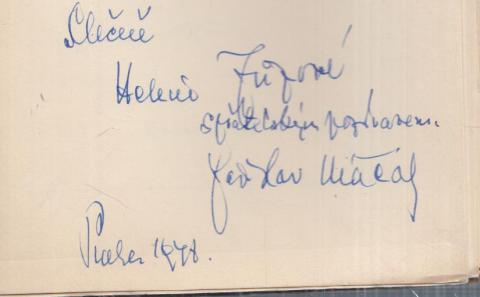 Slečně
Heleně Fůrové
s přátelským pozdravem.
Jaroslav
Praha 1948.